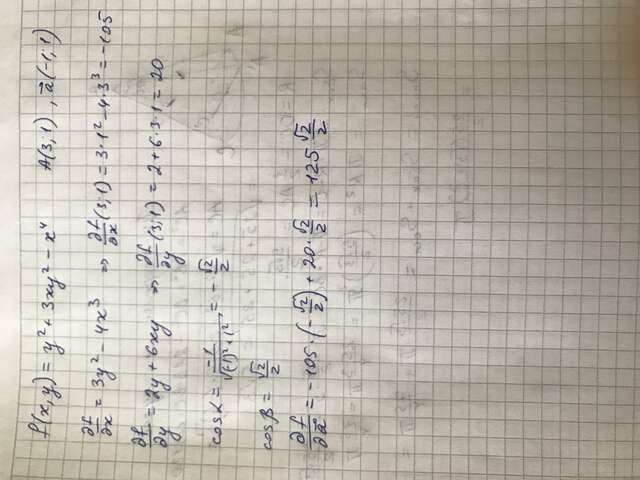 f(x,y) = y² + 3xy² - x⁴ A(3;1), a⃗(-1;1)
∂f/∂x = 3y² - 4x³ ⇒ ∂f/∂x (3;1) = 3·1² - 4·3³ = -105
∂f/∂y = 2y + 6xy ⇒ ∂f/∂y (3;1) = 2 + 6·3·1 = 20
cosα = -1/√((-1)² + 1²) = - √2/2
cosβ = √2/2
∂f/∂a⃗ = -105·(-√2/2) + 20·√2/2 = 125·√2/2